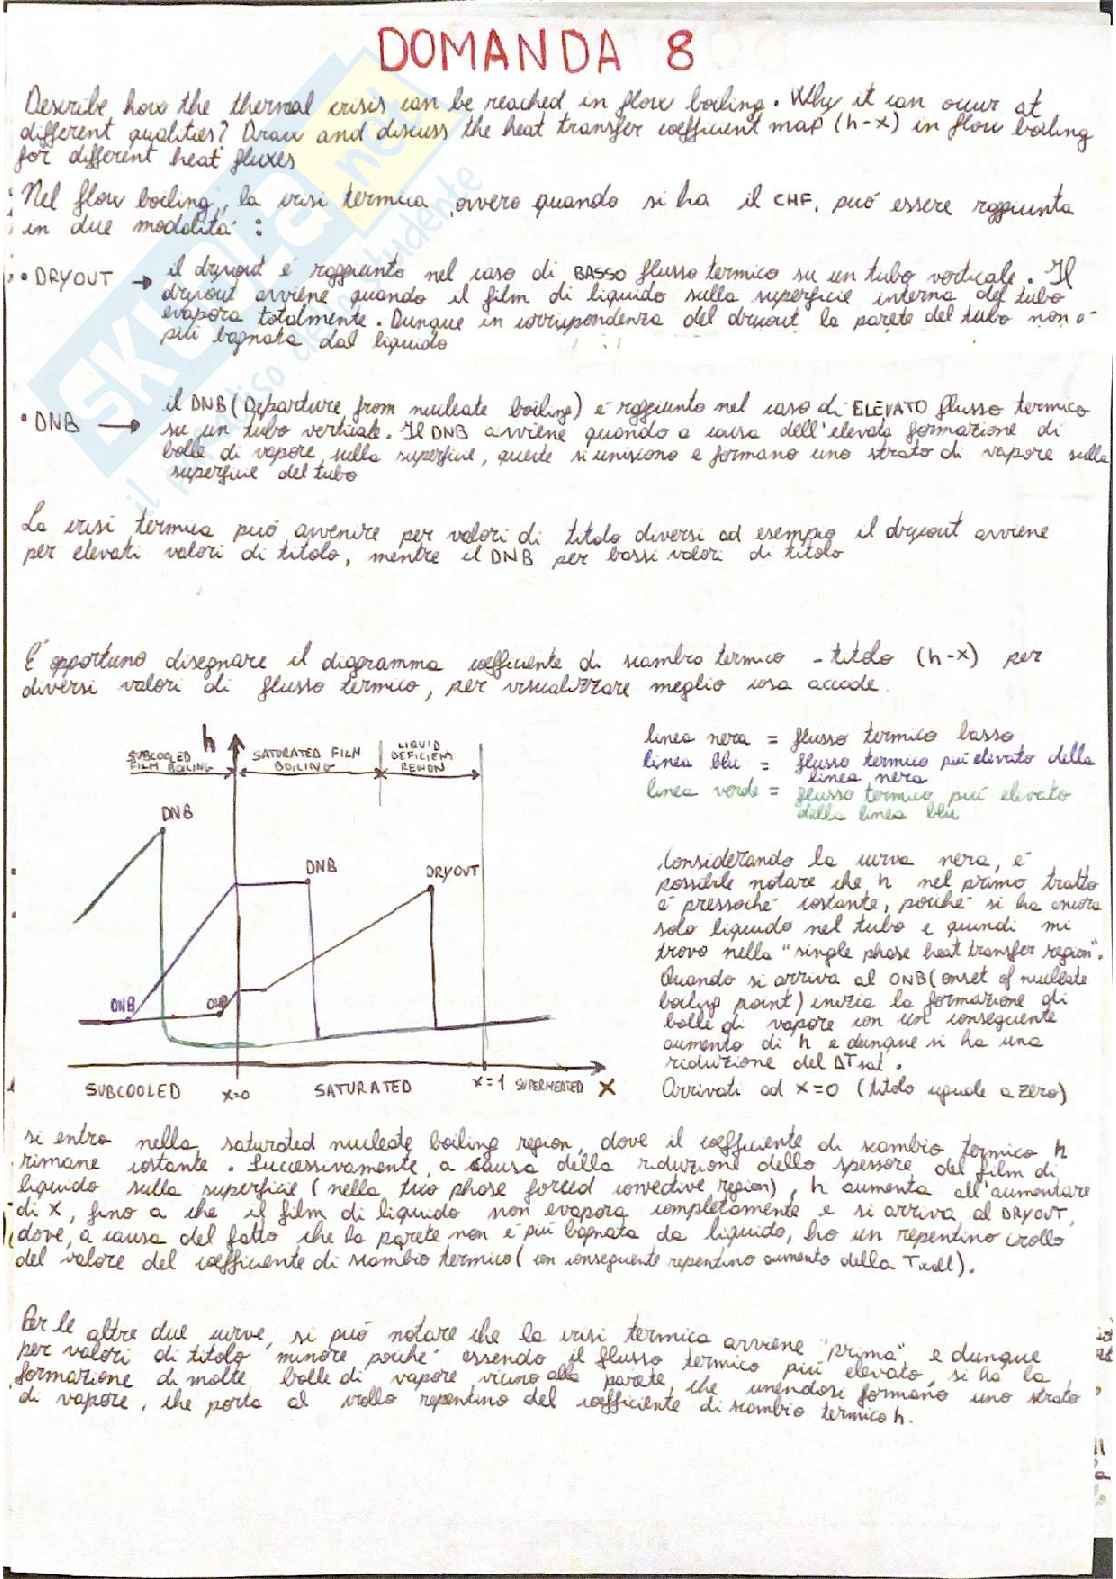 DOMANDA 8
Describe how the thermal crisis can be reached in flow boiling. Why it can occur at
different qualities? Draw and discuss the heat transfer coefficient map (h-x) in flow boiling
for different heat fluxes
Nel flow boiling, la crisi termica ovvero quando si ha il CHF, può essere raggiunta
in due modalità:
• DRYOUT → il dryout è raggiunto nel caso di BASSO flusso termico su un tubo verticale. Il
dryout avviene quando il film di liquido sulla superficie interna del tubo
evapora totalmente. Dunque in corrispondenza del dryout la parete del tubo non è
più bagnata dal liquido
• DNB → il DNB (Departure from nucleate boiling) è raggiunto nel caso di ELEVATO flusso termico
su un tubo verticale. Il DNB avviene quando a causa dell'elevata formazione di
bolle di vapore sulla superficie, queste si uniscono e formano uno strato di vapore sulla
superficie del tubo
La crisi termica può avvenire per valori di titolo diversi ad esempio il dryout avviene
per elevati valori di titolo, mentre il DNB per bassi valori di titolo
È opportuno disegnare il diagramma coefficiente di scambio termico - titolo (h-x) per
diversi valori di flusso termico, per visualizzare meglio cosa accade.
h
SUBCOOLED
FILM BOILING
SATURATED FILM
BOILING
LIQUID
DEFICIENT
REGION
DNB
DNB
DRYOUT
ONB
ONB
SUBCOOLED
x=0
SATURATED
x=1
SUPERHEATED
X
linea nera = flusso termico basso
linea blu = flusso termico più elevato della
linea nera
linea verde = flusso termico più elevato
della linea blu
Considerando la curva nera, è
possibile notare che h nel primo tratto
è pressoché costante, poiché si ha ancora
solo liquido nel tubo e quindi mi
trovo nella "single phase heat transfer region".
Quando si arriva al ONB (onset of nucleate
boiling point) inizia la formazione di
bolle di vapore con un conseguente
aumento di h e dunque si ha una
riduzione del ΔTsat.
Arrivati ad x=0 (titolo uguale a zero)
si entra nella saturated nucleate boiling region, dove il coefficiente di scambio termico h
rimane costante. Successivamente, a causa della riduzione dello spessore del film di
liquido sulla superficie (nella two phase forced convective region), h aumenta all'aumentare
di x, fino a che il film di liquido non evapora completamente e si arriva al DRYOUT,
dove, a causa del fatto che la parete non è più bagnata da liquido, ho un repentino crollo
del valore del coefficiente di scambio termico (con conseguente repentino aumento della Twall).
Per le altre due curve, si può notare che la crisi termica avviene "prima" e dunque
per valori di titolo minore poiché essendo il flusso termico più elevato, si ha la
formazione di molte bolle di vapore vicino alla parete, che unendosi formano uno strato
di vapore, che porta al crollo repentino del coefficiente di scambio termico h.